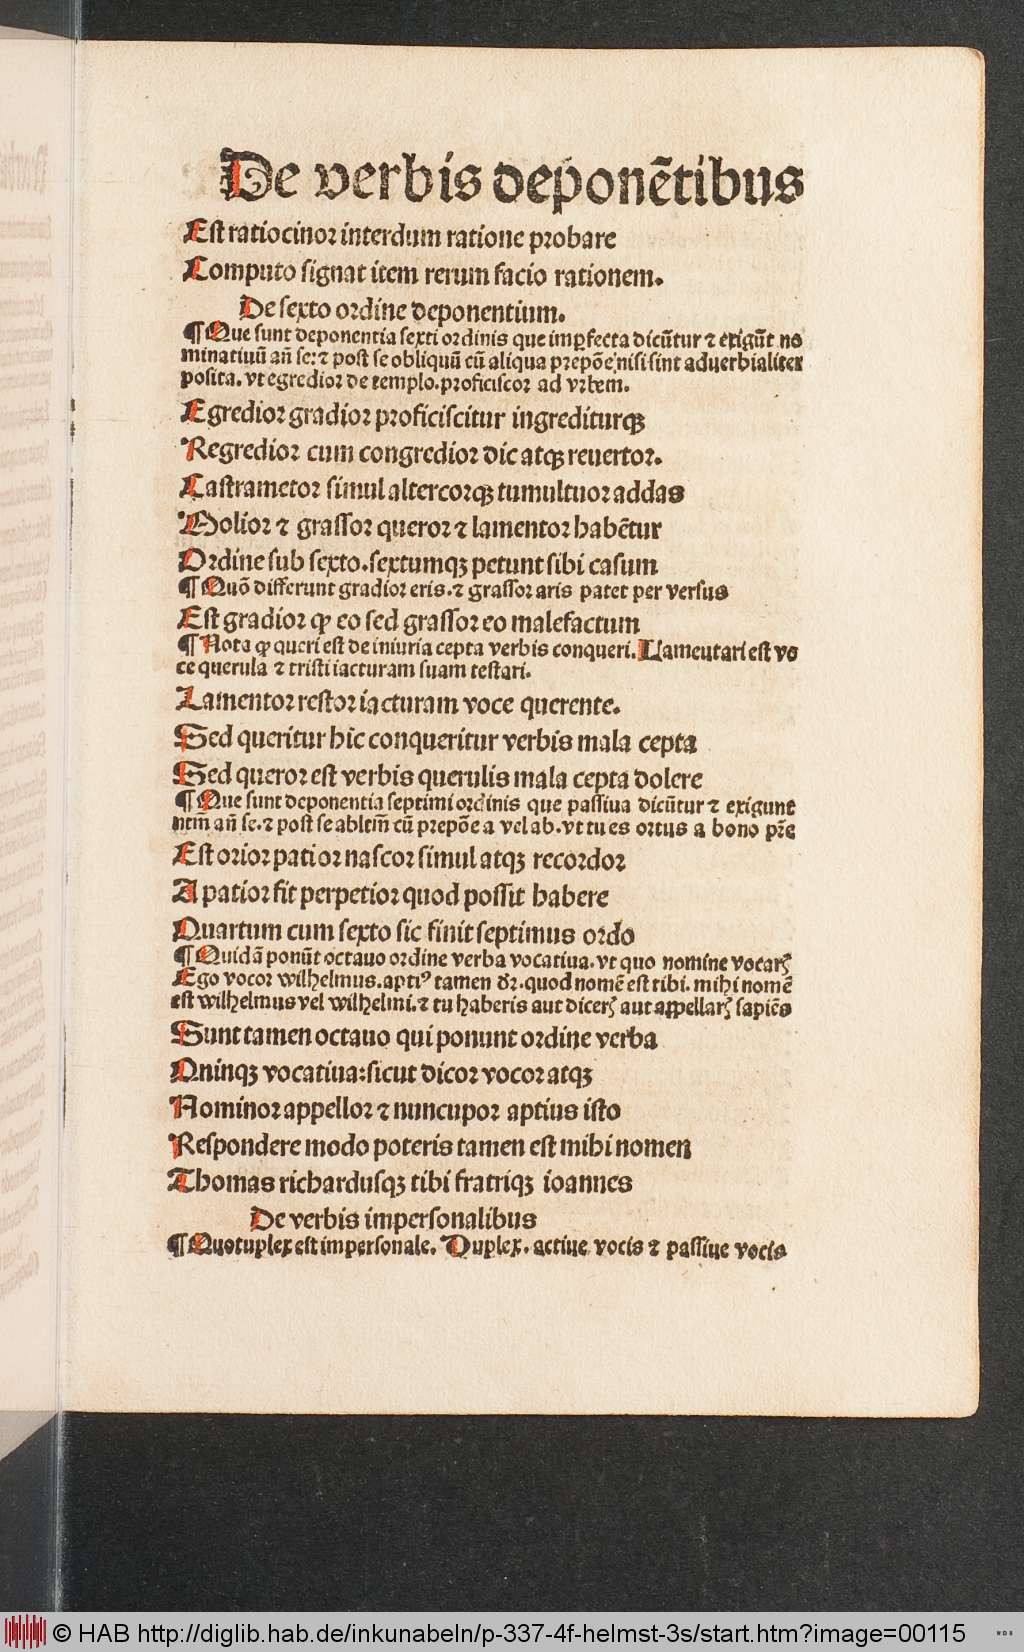 De verbis deponẽtibus
Est ratiocinor interdum ratione probare
Computo signat item rerum facio rationem.
De sexto ordine deponentium.
¶ Que sunt deponentia sexti ordinis que imꝑfecta dicũtur ⁊ exigũt no
minatiuũ añ se: ⁊ post se obliquũ cũ aliqua prepõe nisi sint aduerbialiter
posita. vt egredior de templo. proficiscor ad vrbem.
Egredior gradior proficiscitur ingrediturqꝫ
Regredior cum congredior dic atqꝫ reuertor.
Castrametor simul altercorqꝫ tumultuor addas
Molior ⁊ grassor queror ⁊ lamentor habẽtur
Ordine sub sexto. sextumqꝫ petunt sibi casum
¶ Quõ differunt gradior eris. ⁊ grassor aris patet per versus
Est gradior ꝙ eo sed grassor eo malefactum
¶ Nota ꝙ queri est de iniuria cepta verbis conqueri. Lamentari est vo
ce querula ⁊ tristi iacturam suam testari.
Lamentor restor iacturam voce querente.
Sed queritur hic conqueritur verbis mala cepta
Sed queror est verbis querulis mala cepta dolere
¶ Que sunt deponentia septimi ordinis que passiua dicũtur ⁊ exigunt
ntm̃ añ se. ⁊ post se abltm̃ cũ prepõe a vel ab. vt tu es ortus a bono pr̃e
Est orior patior nascor simul atqꝫ recordor
A patior fit perpetior quod possit habere
Quartum cum sexto sic finit septimus ordo
¶ Quidã ponũt octauo ordine verba vocatiua. vt quo nomine vocarꝭ
Ego vocor wilhelmus. aptiꝰ tamen dr̃. quod nomẽ est tibi. mihi nomẽ
est wilhelmus vel wilhelmi. ⁊ tu haberis aut dicerꝭ aut aꝑpellarꝭ sapiẽs
Sunt tamen octauo qui ponunt ordine verba
Oninqꝫ vocatiua: sicut dicor vocor atqꝫ
Nominor appellor ⁊ nuncupor aptius isto
Respondere modo poteris tamen est mihi nomen
Thomas richardusqꝫ tibi fratriqꝫ ioannes
De verbis impersonalibus
¶ Quotuplex est impersonale. Duplex. actiue vocis ⁊ passiue vocis
© HAB http://diglib.hab.de/inkunabeln/p-337-4f-helmst-3s/start.htm?image=00115